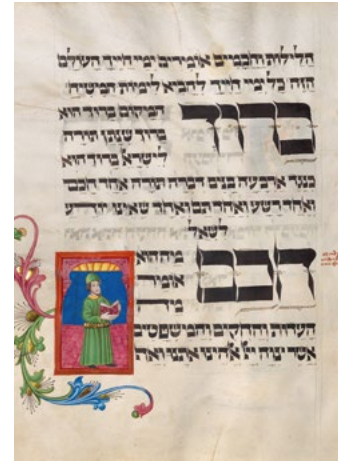 הלילות וחכמים אומרים ימי חייך העולם
הזה כל ימי חייך להביא לימות המשיח
ברוך המקום ברוך הוא
ברוך שנתן תורה
לישראל ברוך הוא
כנגד ארבעה בנים דברה תורה אחד חכם
ואחד רשע ואחד תם ואחד שאינו יודע
לשאל
חכם מה הוא
אומר
מה
העדות והחקים והמשפטים
אשר צוה יי אלהינו